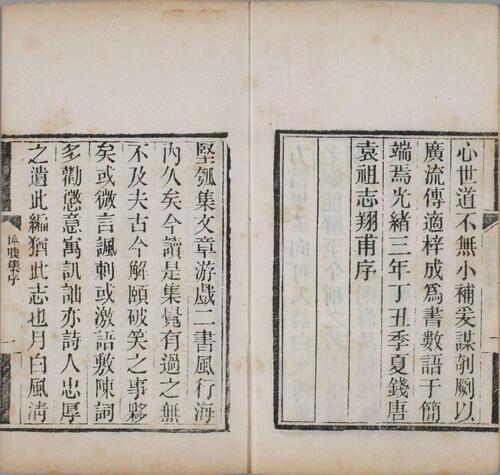 心世道不無小補爰謀剞劂以
廣流傳適梓成爲書數語于簡
端焉光緒三年丁丑季夏錢唐
袁祖志翔甫序
堅瓠集文章游戲二書風行海
內久矣今讀是集覺有過之無
不及夫古今解頤破笑之事夥
矣或微言諷刺或激語敷陳詞
多勸懲意寓訕詘亦詩人忠厚
之遺此編猶此志也月白風淸
捧腹集序